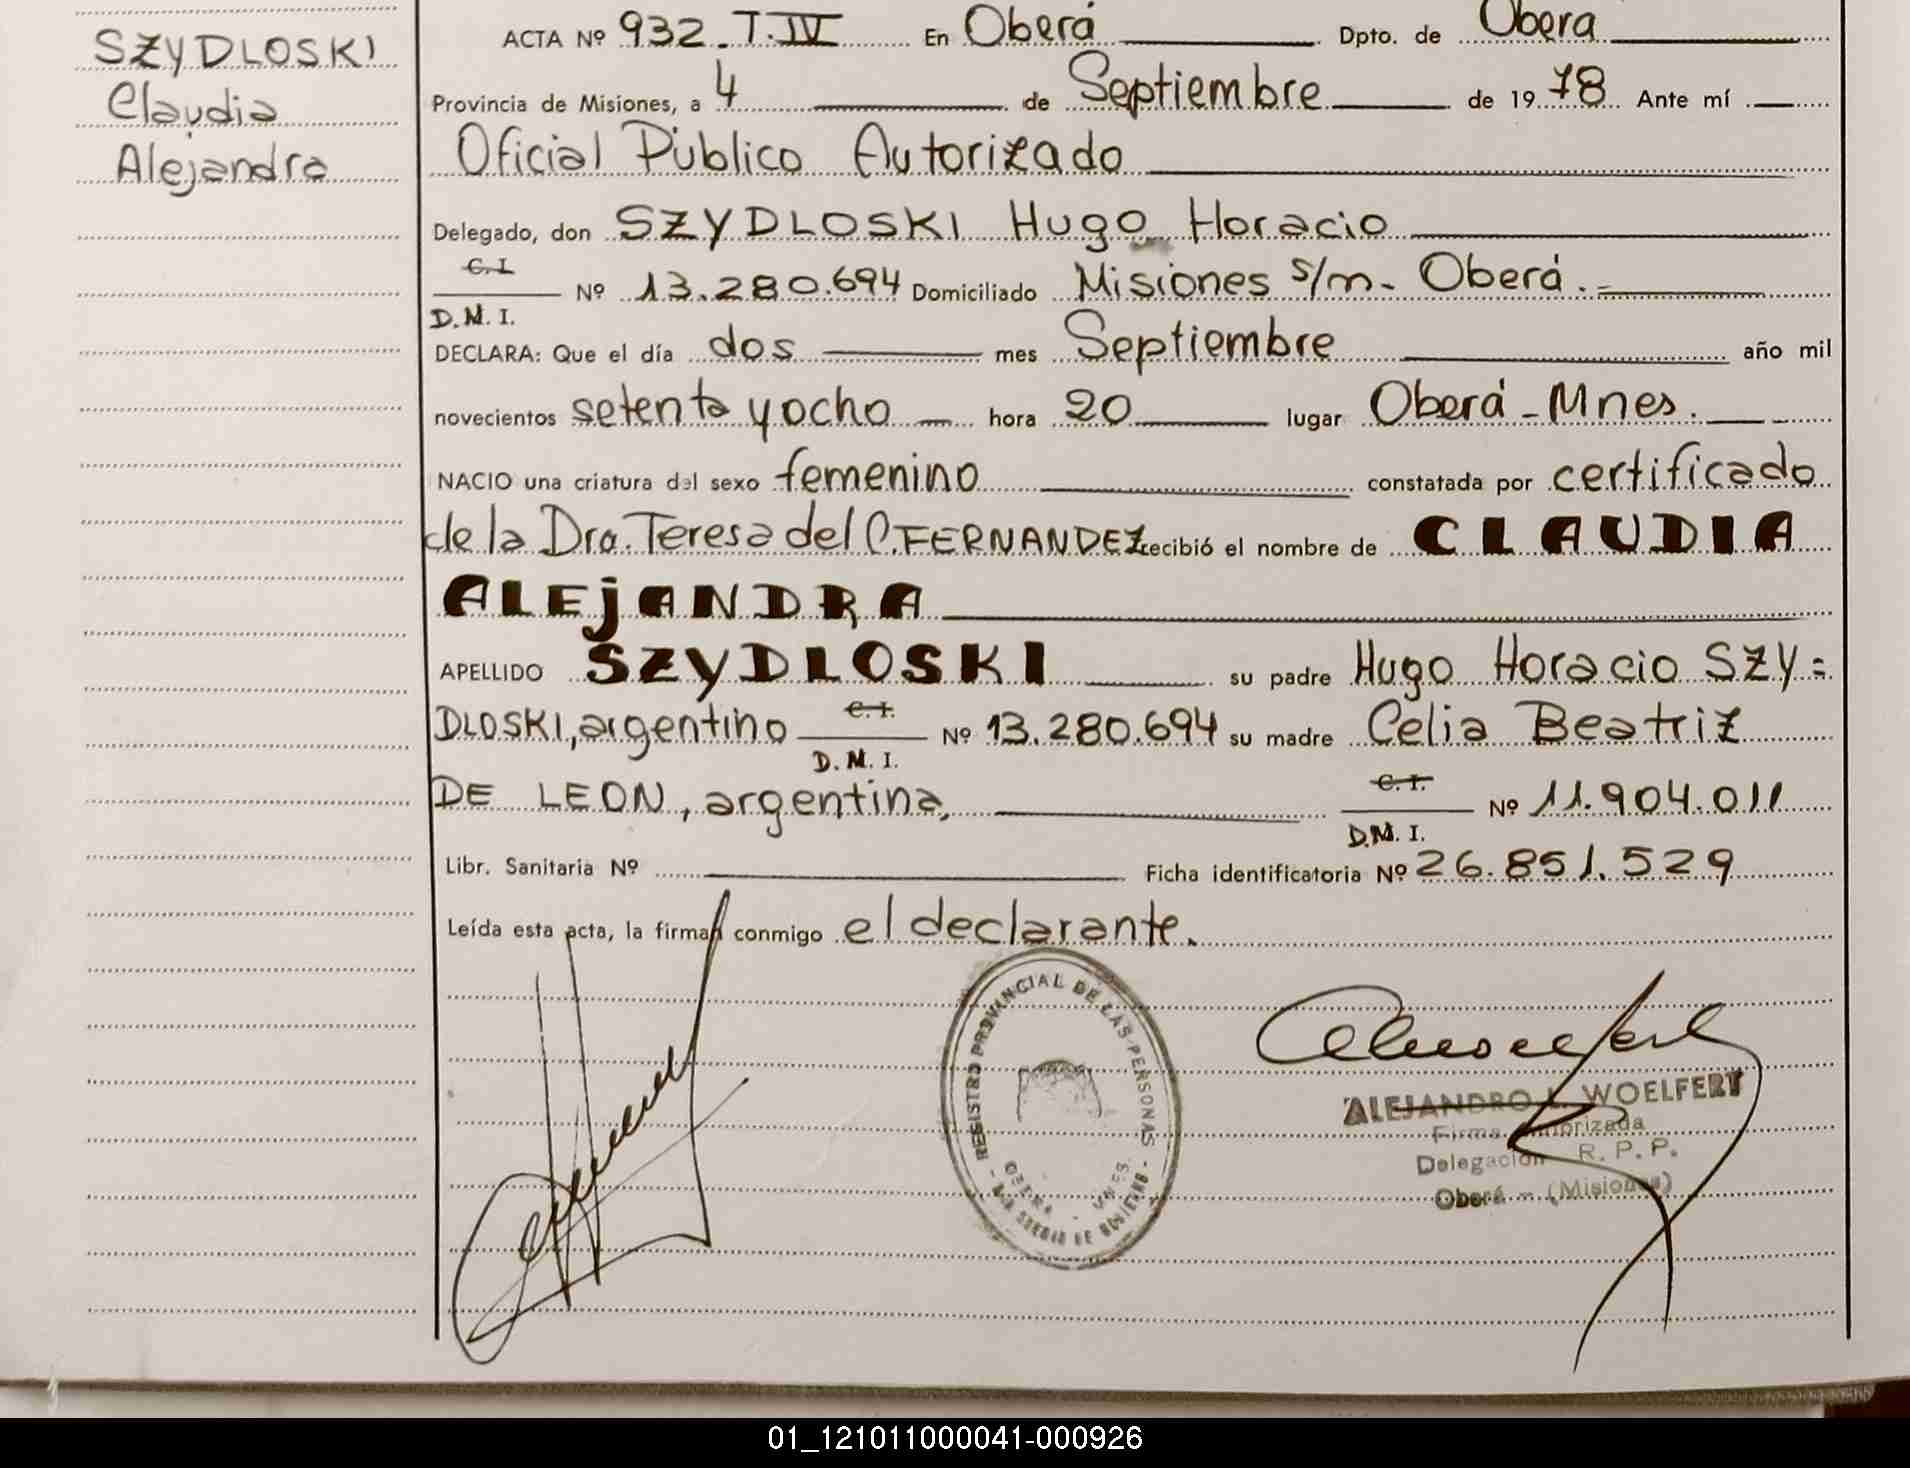 SZYDLOSKI
Claudia
Alejandra
ACTA Nº 932 T. IV En Oberá Dpto. de Oberá
Provincia de Misiones, a 4 de Septiembre de 1978 Ante mí
Oficial Público Autorizado
Delegado, don SZYDLOSKI Hugo Horacio
C.I.
Nº 13.280.694 Domiciliado Misiones s/m- Oberá.-
D.M.I.
DECLARA: Que el día dos mes Septiembre año mil
novecientos setenta y ocho hora 20 lugar Oberá-Mnes.
NACIO una criatura del sexo femenino constatada por certificado
de la Dra. Teresa del C. FERNANDEZ recibió el nombre de CLAUDIA
ALEJANDRA
APELLIDO SZYDLOSKI su padre Hugo Horacio SZY=
DLOSKI, argentino C.I. Nº 13.280.694 su madre Celia Beatriz
D.M.I.
DE LEON, argentina, C.I. Nº 11.904.011
D.M.I.
Libr. Sanitaria Nº Ficha identificatoria Nº 26.851.529
Leída esta acta, la firman conmigo el declarante.
REGISTRO PROVINCIAL DE LAS PERSONAS
OBERA - MNES.
ALEJANDRO L. WOELFERT
Firma Autorizada
Delegación R. P. P.
Oberá - (Misiones)
01_121011000041-000926